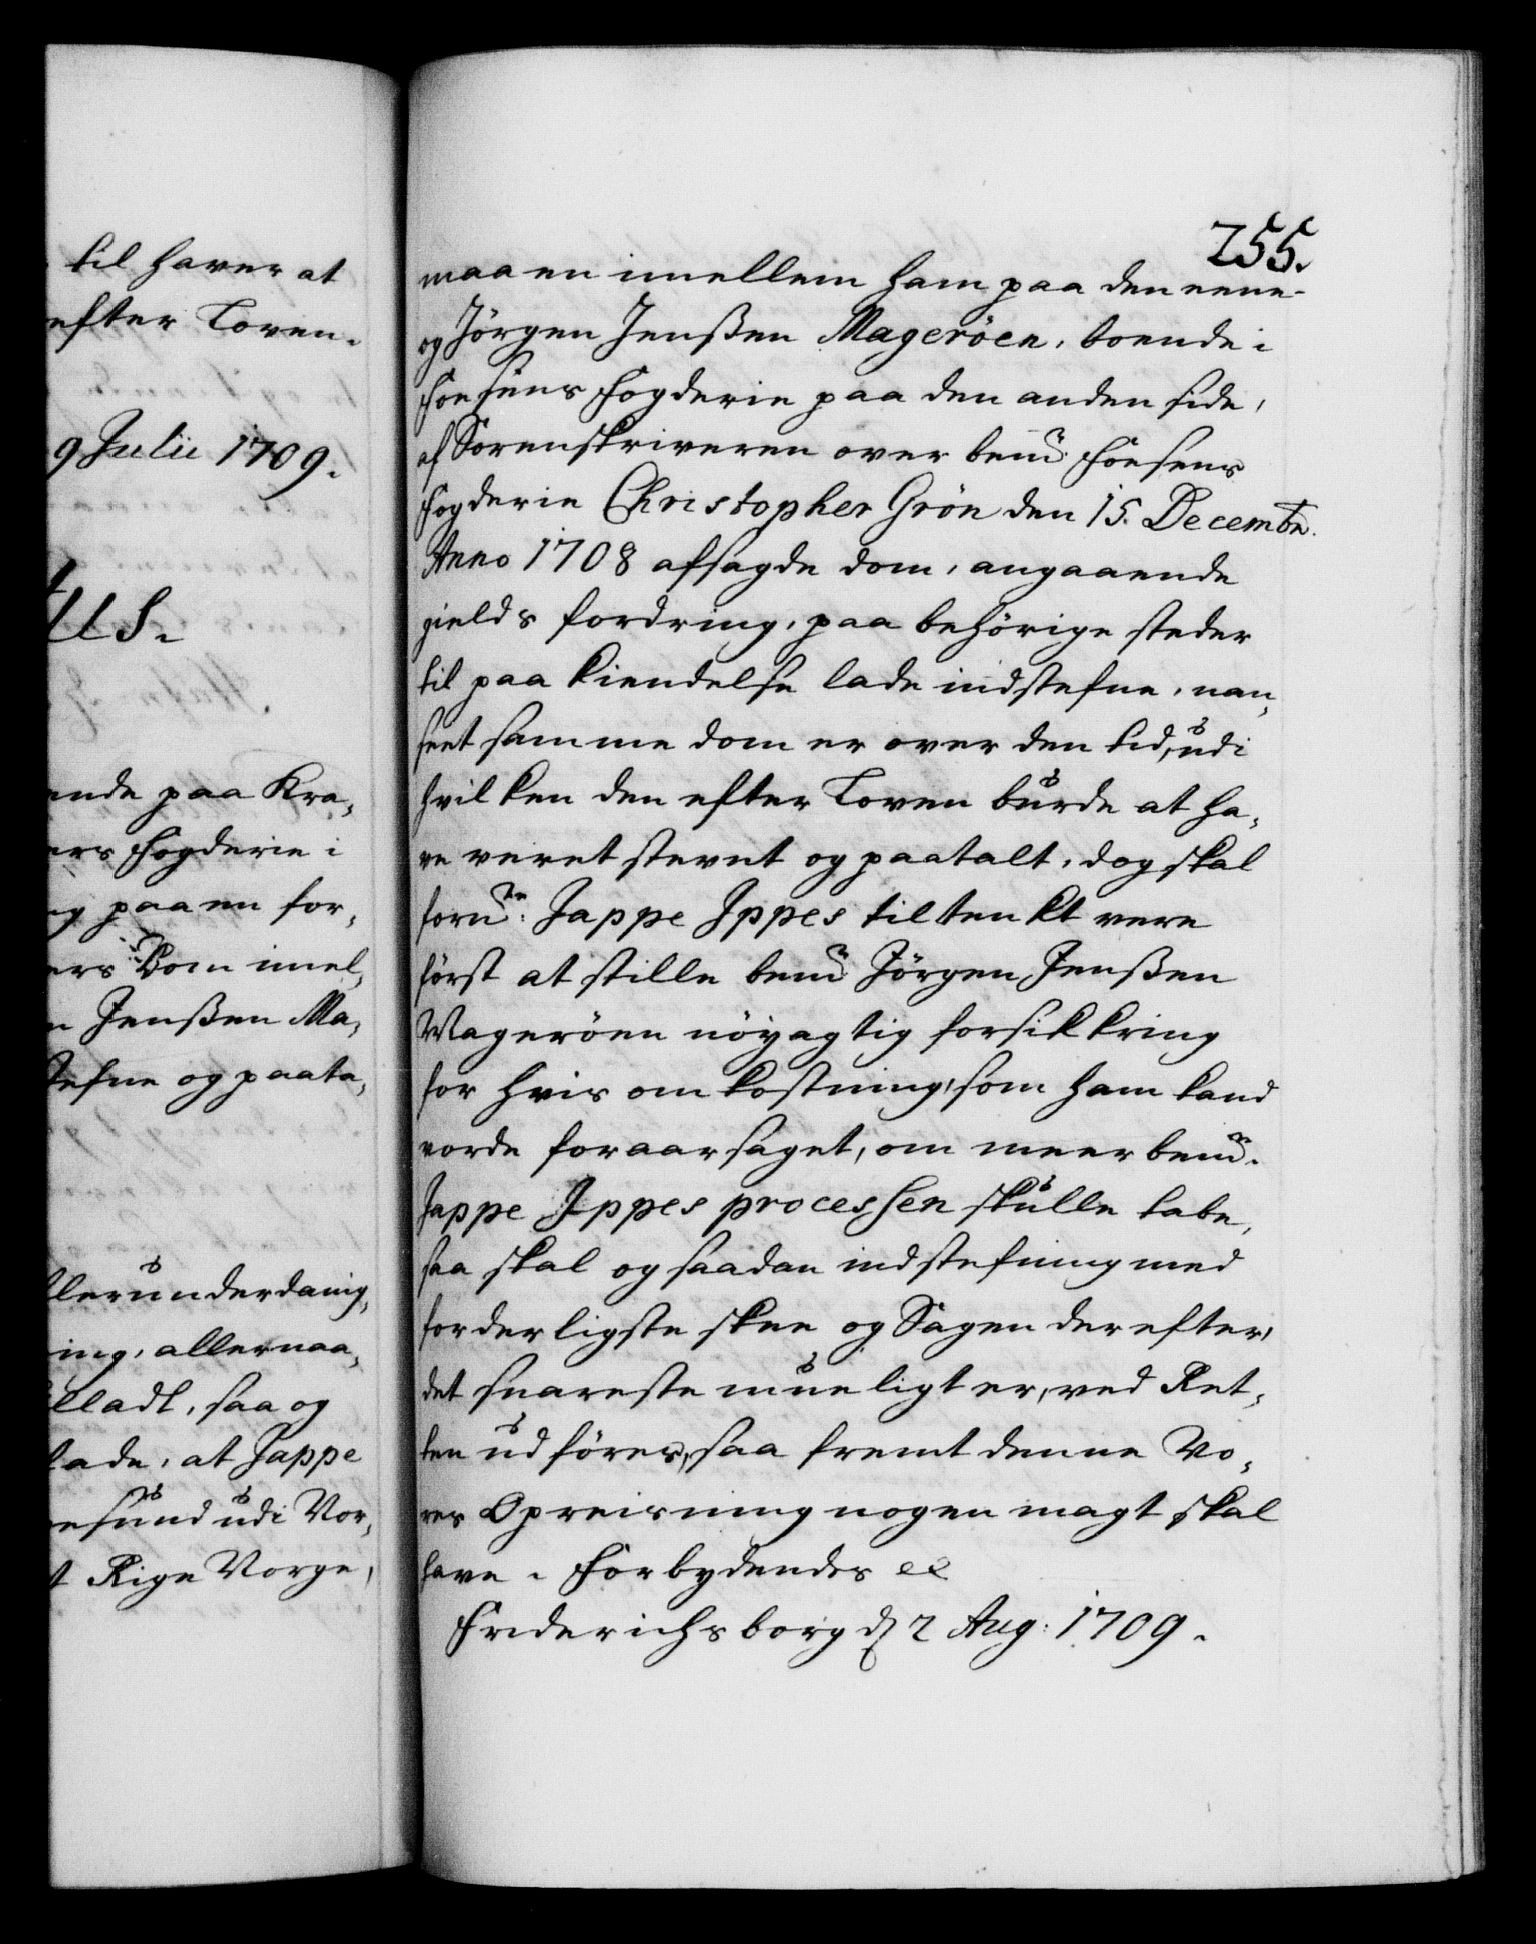 til haver at
efter Loven.
9 Julii 1709.
us.
ende paa Kra„
ers Fogderie i
ng paa en for„
ers Dom imel„
n Jenssen Ma„
stefne og paata„
llerunderdanig„
ing, allernaa„
illadt, saa og
lade, at Jappe
esund udi Vor„
t Rige Norge,
255.
maa en imellem ham paa den eene
og Jörgen Jenssen Mageröen, boende i
Foesens Fogderie paa den anden side,
af Sorenskriveren over bem.te Foesens
Fogderie Christopher Grön den 15. Decembr.
Anno 1708 afsagde dom, angaaende
gields fordring, paa behörige steder
til paa kiendelse lade indstefne, uan„
seet samme dom er over den tid, udi
hvilken den efter Loven burde at ha„
ve veret stevnt og paatalt, dog skal
forn.te Jappe Ippes tiltenkt vere
först at stille bem.te Jörgen Jenssen
Mageröen nöyagtig forsikkring
for hvis omkostning, som ham kand
vorde foraarsaget, om meerbem.te
Jappe Ippes processen skulle tabe,
saa skal og saadan indstefning med
forderligste skee og Sagen derefter,
det snareste mueligt er, ved Ret„
ten udföres, saa fremt denne Vo„
res Opreisning nogen magt skal
have. Forbydendes etc
Friderichsborg d 2 Aug: 1709.